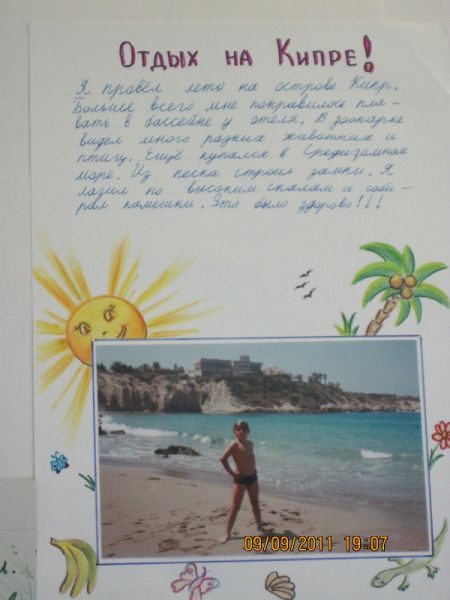 Отдых на Кипре!
Я провёл лето на острове Кипр.
Больше всего мне понравилось пла-
вать в бассейне у отеля. В зоопарке
видел много разных животных и
птицу. Ещё купался в Средиземном
море. Из песка строил замки. Я
лазил по высоким скалам и соби-
рал камешки. Это было здорово!!!
09/09/2011 19:07